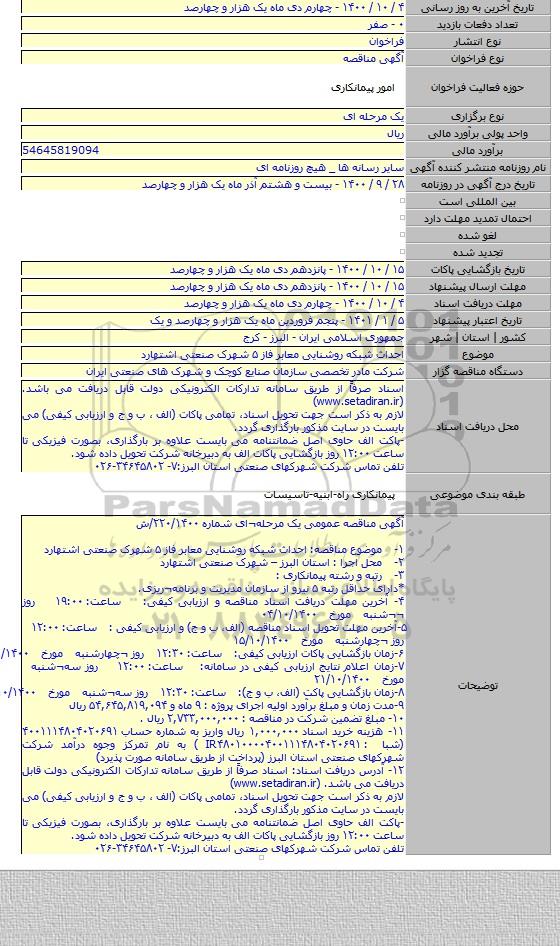 تاریخ آخرین به روز رسانی ۴ / ۱۰ / ۱۴۰۰ - چهارم دی ماه یک هزار و چهارصد
تعداد دفعات بازدید ۰ - صفر
نوع انتشار فراخوان
نوع فراخوان آگهی مناقصه
حوزه فعالیت فراخوان امور پیمانکاری
نوع برگزاری یک مرحله ای
واحد پولی برآورد مالی ریال
برآورد مالی 54645819094
نام روزنامه منتشر کننده آگهی سایر رسانه ها _ هیچ روزنامه ای
تاریخ درج آگهی در روزنامه ۲۸ / ۹ / ۱۴۰۰ - بیست و هشتم آذر ماه یک هزار و چهارصد
بین المللی است
احتمال تمدید مهلت دارد
لغو شده
تجدید شده
تاریخ بازگشایی پاکات ۱۵ / ۱۰ / ۱۴۰۰ - پانزدهم دی ماه یک هزار و چهارصد
مهلت ارسال پیشنهاد ۱۵ / ۱۰ / ۱۴۰۰ - پانزدهم دی ماه یک هزار و چهارصد
مهلت دریافت اسناد ۴ / ۱۰ / ۱۴۰۰ - چهارم دی ماه یک هزار و چهارصد
تاریخ اعتبار پیشنهاد ۵ / ۱ / ۱۴۰۱ - پنجم فروردین ماه یک هزار و چهارصد و یک
کشور | استان | شهر جمهوری اسلامی ایران - البرز - کرج
موضوع احداث شبکه روشنایی معابر فاز ۵ شهرک صنعتی اشتهارد
دستگاه مناقصه گزار شرکت مادر تخصصی سازمان صنایع کوچک و شهرک های صنعتی ایران
محل دریافت اسناد
اسناد صرفاً از طریق سامانه تدارکات الکترونیکی دولت قابل دریافت می باشد.
(www.setadiran.ir)
لازم به ذکر است جهت تحویل اسناد، تمامی پاکات (الف ، ب و ج و ارزیابی کیفی) می
بایست در سایت مذکور بارگذاری گردد.
-پاکت الف حاوی اصل ضمانتنامه می بایست علاوه بر بارگذاری، بصورت فیزیکی تا
ساعت ۱۲:۰۰ روز بازگشایی پاکات الف به دبیرخانه شرکت تحویل داده شود.
تلفن تماس شرکت شهرکهای صنعتی استان البرز:۷- ۳۴۶۴۵۸۰۲-۰۲۶
طبقه بندی موضوعی پیمانکاری راه-ابنیه-تاسیسات
ParsNamadData
توضیحات
آگهی مناقصه عمومی یک مرحله¬ای شماره ۲۲۰/۱۴۰۰/ش
۱- موضوع مناقصه: احداث شبکه روشنایی معابر فاز ۵ شهرک صنعتی اشتهارد
۲- محل اجرا : استان البرز – شهرک صنعتی اشتهارد
۳- رتبه و رشته پیمانکاری :
*دارای حداقل رتبه ۵ نیرو از سازمان مدیریت و برنامه¬ریزی.
۴- آخرین مهلت دریافت اسناد مناقصه و ارزیابی کیفی: ساعت: ۱۹:۰۰ روز
¬¬شنبه مورخ ۰۴/۱۰/۱۴۰۰
۵-آخرین مهلت تحویل اسناد مناقصه (الف، ب و ج) و ارزیابی کیفی : ساعت: ۱۲:۰۰
روز ¬چهارشنبه مورخ ۱۵/۱۰/۱۴۰۰
۶-زمان بازگشایی پاکات ارزیابی کیفی: ساعت: ۱۲:۳۰ روز ¬چهارشنبه مورخ
۷-زمان اعلام نتایج ارزیابی کیفی در سامانه: ساعت: ۱۲:۰۰ روز سه¬شنبه
مورخ ۲۱/۱۰/۱۴۰۰
۸-زمان بازگشایی پاکت (الف، ب و ج): ساعت: ۱۲:۳۰ روز سه¬شنبه مورخ
۹-مدت زمان و مبلغ برآورد اولیه اجرای پروژه : ۹ ماه و ۵۴,۶۴۵,۸۱۹,۰۹۴ ریال
۱۰- مبلغ تضمین شرکت در مناقصه : ۲,۷۳۳,۰۰۰,۰۰۰ ریال .
۱۱- هزینه خرید اسناد ۱,۰۰۰,۰۰۰ ریال واریز به شماره حساب ۴۰۰۱۱۱۴۸۰۴۰۲۰۶۹۱
(شبا : IR۴۸۰۱۰۰۰۰۴۰۰۱۱۱۴۸۰۴۰۲۰۶۹۱ ) به نام تمرکز وجوه درآمد شرکت
شهرکهای صنعتی استان البرز (پرداخت از طریق سامانه صورت پذیرد)
۱۲- آدرس دریافت اسناد: اسناد صرفاً از طریق سامانه تدارکات الکترونیکی دولت قابل
دریافت می باشد. (www.setadiran.ir)
لازم به ذکر است جهت تحویل اسناد، تمامی پاکات (الف ، ب و ج و ارزیابی کیفی) می
بایست در سایت مذکور بارگذاری گردد.
-پاکت الف حاوی اصل ضمانتنامه می بایست علاوه بر بارگذاری، بصورت فیزیکی تا
ساعت ۱۲:۰۰ روز بازگشایی پاکات الف به دبیرخانه شرکت تحویل داده شود.
تلفن تماس شرکت شهرکهای صنعتی استان البرز:۷- ۳۴۶۴۵۸۰۲-۰۲۶